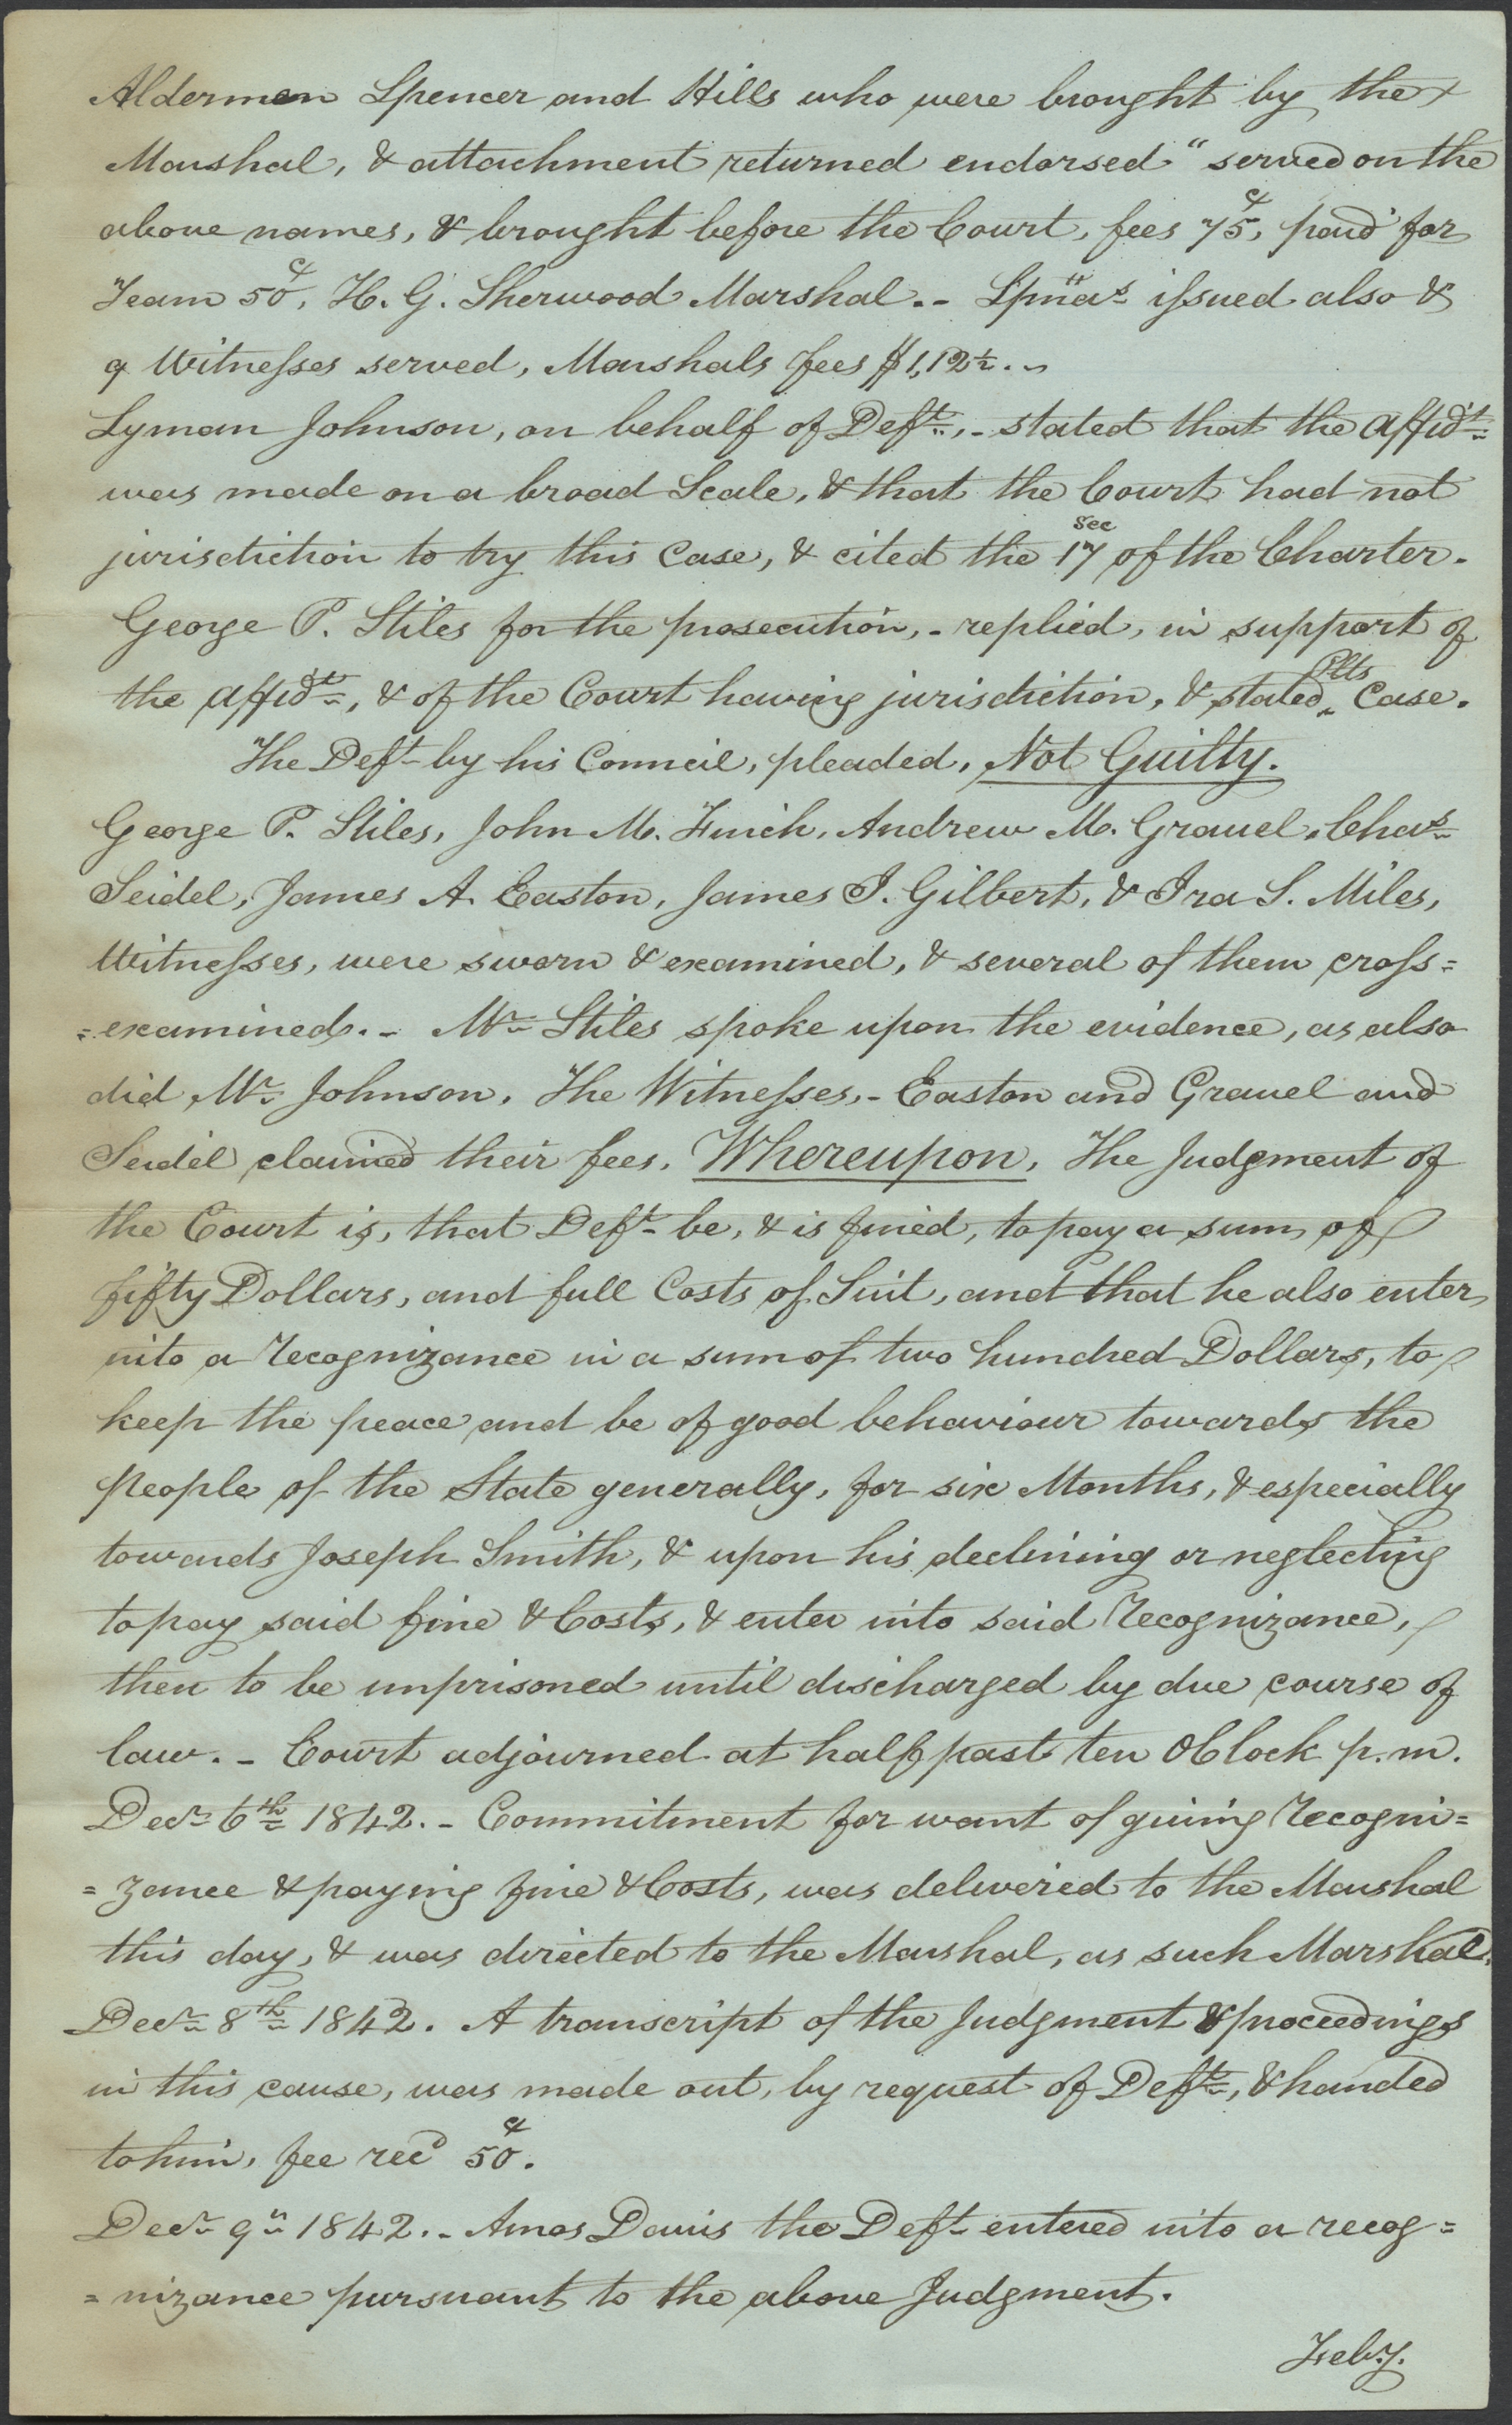 Aldermen Spencer and Hills who were brought by the
Marshal, & attachment returned endorsed "served on the
above names, & brought before the Court, fees 75 ¢, paid for
Team 50 ¢, H. G. Sherwood Marshal.- Spnas issued also &
9 Witnesses served, Marshals fees $1,12½.-
Lyman Johnson, on behalf of Deft.,- stated that the affidt
was made on a broad Scale, & that the Court had not
jurisdiction to try this Case, & cited the 17 sec of the Charter.
George P. Stiles for the prosecution,- replied, in support of
the affidt, & of the Court having jurisdiction, & stated Plts Case.
The Deft by his Council, pleaded, Not Guilty.
George P. Stiles, John M. Finch, Andrew M. Gravel, Chas
Seidel, James A. Easton, James I. Gilbert, & Ira S. Miles,
Witnesses, were sworn & examined, & several of them cross=
=examined.- Mr Stiles spoke upon the evidence, as also
did Mr. Johnson. The Witnesses,- Easton and Gravel and
Seidel claimed their fees. Whereupon, The Judgment of
the Court is, that Deft be, & is fined, to pay a sum of
fifty Dollars, and full Costs of Suit, and that he also enter
into a recognizance in a sum of two hundred Dollars, to
keep the peace and be of good behaviour towards the
people of the State generally, for six Months, & especially
towards Joseph Smith, & upon his declining or neglecting
to pay said fine & Costs, & enter into said recognizance,
then to be imprisoned until discharged by due course of
law.- Court adjourned at half past ten OClock p.m.
Decr 6th 1842.- Commitment for want of giving recogni=
=zance & paying fine & Costs, was delivered to the Marshal
this day, & was directed to the Marshal, as such Marshal.
Decr 8th 1842. A transcript of the Judgment & proceedings
in this cause, was made out, by request of Deft, & handed
to him, fee recd 50 ¢.
Decr 9th 1842.- Amos Davis the Deft entered into a recog=
=nizance pursuant to the above Judgment.
Feby.